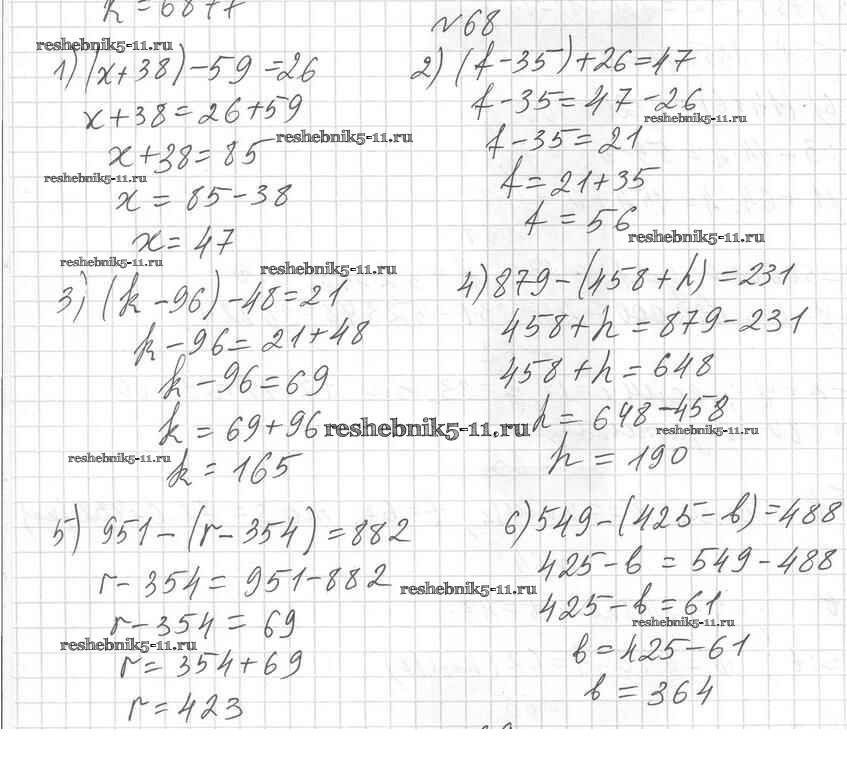 №68
reshebnik5-11.ru
1) (x+38)-59=26
x+38=26+59
reshebnik5-11.ru
x+38=85
reshebnik5-11.ru
x=85-38
x=47
reshebnik5-11.ru
2) (f-35)+26=47
f-35=47-26
reshebnik5-11.ru
f-35=21
f=21+35
f=56
reshebnik5-11.ru
reshebnik5-11.ru
3) (k-96)-48=21
k-96=21+48
k-96=69
k=69+96
reshebnik5-11.ru
reshebnik5-11.ru
k=165
4) 879-(458+h)=231
458+h=879-231
458+h=648
h=648-458
reshebnik5-11.ru
h=190
5) 951-(r-354)=882
r-354=951-882
reshebnik5-11.ru
r-354=69
reshebnik5-11.ru
r=354+69
r=423
6) 549-(425-b)=488
425-b=549-488
425-b=61
reshebnik5-11.ru
b=425-61
b=364